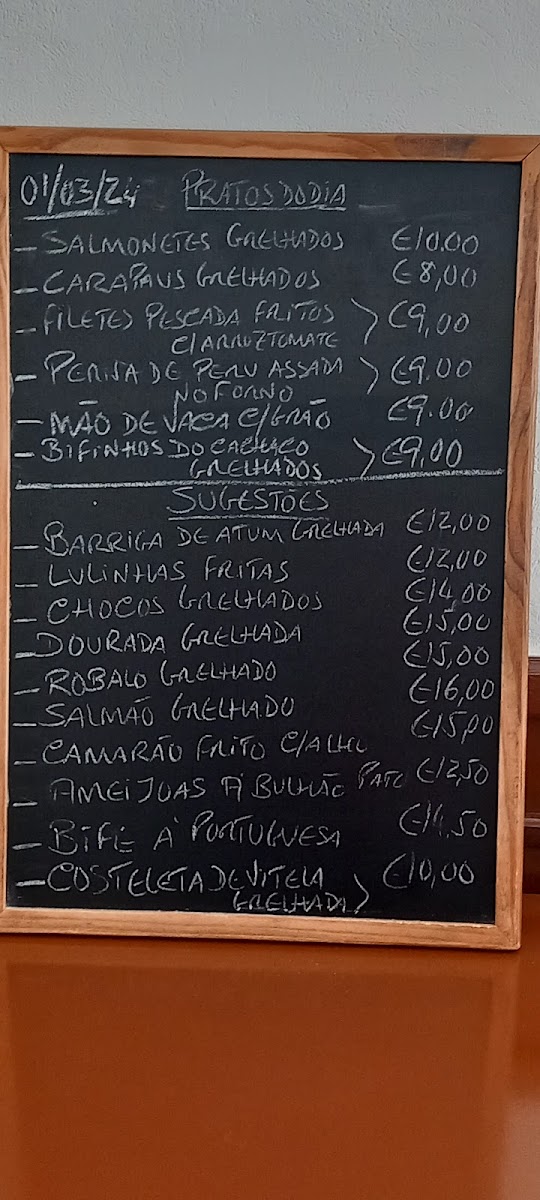 01/03/24 PRATOS DO DIA
- SALMONETES GRELHADOS €10.00
- CARAPAUS GRELHADOS €8,00
- FILETES PESCADA FRITOS > €9,00
C/ARROZ TOMATE
- PERNA DE PERU ASSADA > €9.00
NO FORNO
- MÃO DE VACA C/GRÃO €9.00
- BIFINHOS DO CACHAÇO > €9,00
GRELHADOS
SUGESTÕES
- BARRIGA DE ATUM GRELHADA €12,00
- LULINHAS FRITAS €12,00
- CHOCOS GRELHADOS €14,00
- DOURADA GRELHADA €15,00
- ROBALO GRELHADO €15,00
- SALMÃO GRELHADO €16,00
- CAMARÃO FRITO C/ALHO €15,00
- AMEIJOAS Á BULHÃO PATO €12,50
- BIFE Á PORTUGUESA €14.50
- COSTELETA DE VITELA > €10,00
GRELHADA